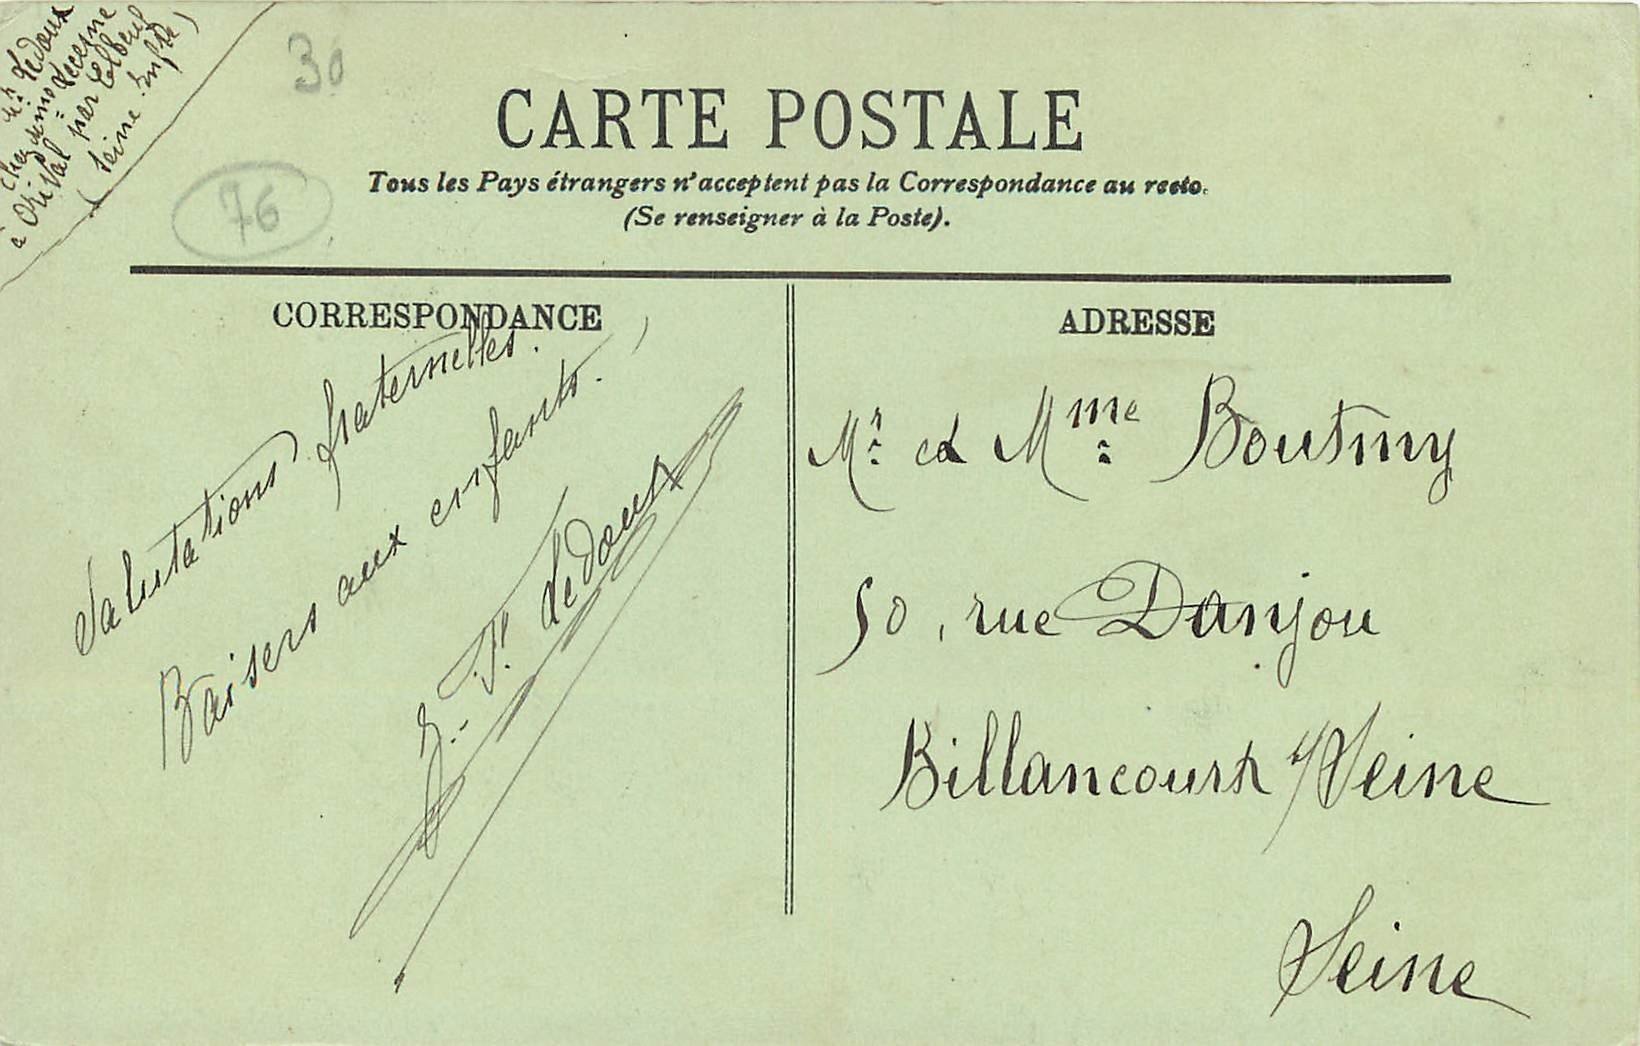 Mr. Ledoux
chez Mme Lecesne
à Orival par Elbeuf
(Seine Infre)
30
76
CARTE POSTALE
Tous les Pays étrangers n'acceptent pas la Correspondance au recto.
(Se renseigner à la Poste).
CORRESPONDANCE
Salutations fraternelles.
Baisers aux enfants.
Ledoux
ADRESSE
Mr. et Mme. Boutmy
50, rue Danjou
Billancourt s/Seine
Seine